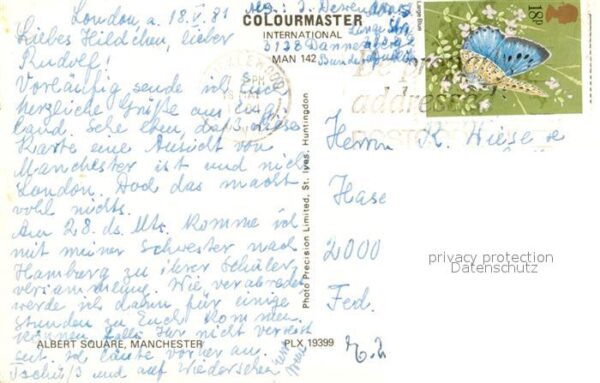 London a. 18.V.81
Liebes Hildchen, lieber
Rudolf!
Vorläufig sende ich Euch
herzliche Grüße aus England.
Sehe eben, daß diese
Karte eine Ansicht von
Manchester ist und nicht
London. Doch das macht
wohl nichts.
Am 28. ds. Mts. komme ich
mit meiner Schwester nach
Hamburg zu ihrer Schüler-
versammlung. Wie verabredet
werde ich dann für einige
Stunden zu Euch kommen
können falls Ihr nicht verreist
seit. Ich läute vorher an.
Tschüß und auf Wiedersehen
COLOURMASTER
INTERNATIONAL
MAN 142
3138 Dannenberg
ALBERT SQUARE, MANCHESTER PLX 19399
Photo Precision Limited, St. Ives, Huntingdon
Large Blue
18p
Be
addressed
Herrn R. Wiese
Hase
2000
Fed.
privacy protection
Datenschutz